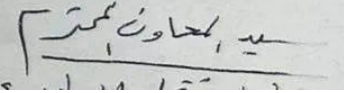 سيد المعاون المحترم